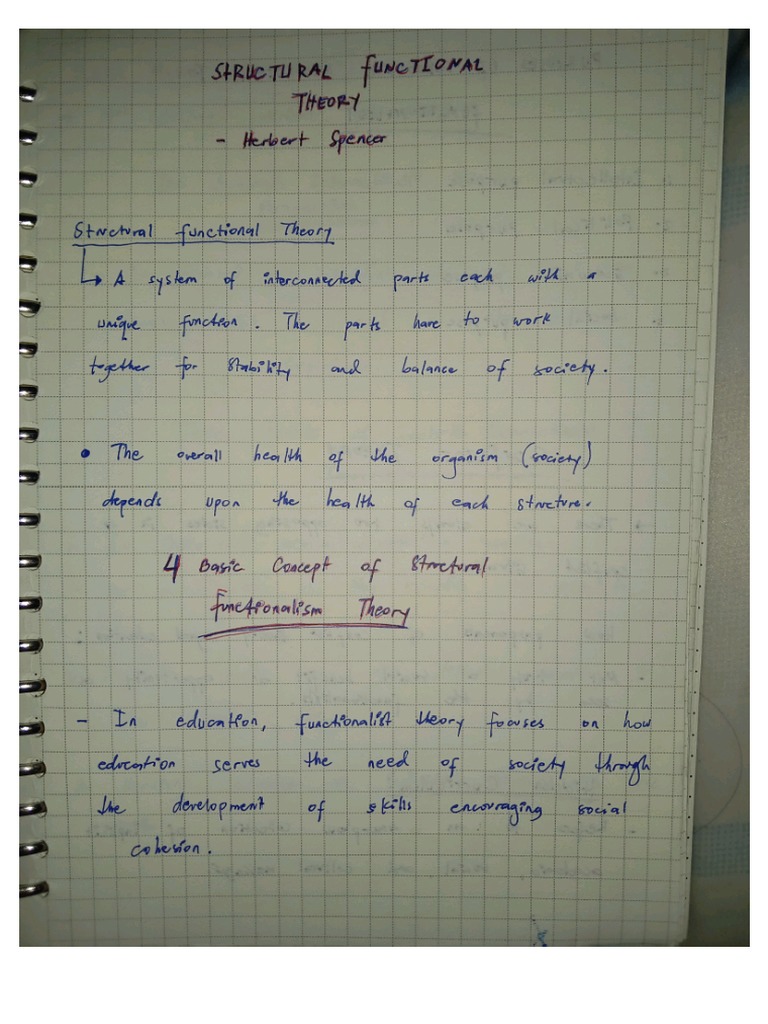 STRUCTURAL FUNCTIONAL
THEORY
- Herbert Spencer
Structural functional Theory
↳ A system of interconnected parts each with a
unique function. The parts have to work
together for stability and balance of society.
• The overall health of the organism (society)
depends upon the health of each structure.
4 Basic Concept of Structural
Functionalism Theory
- In education, functionalist theory focuses on how
education serves the need of society through
the development of skills encouraging social
cohesion.